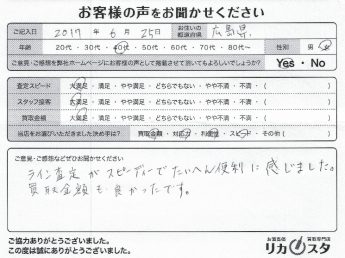 お客様の声をお聞かせください
ご記入日 2017年 6月 25日 お住いの都道府県 広島県
年齢 20代・30代・40代・50代・60代・70代・80代〜 性別 男・女
ご意見・ご感想を弊社ホームページにお客様の声として掲載させて頂いてもよろしいでしょうか? Yes・No
査定スピード 大満足・満足・やや満足・どちらでもない・やや不満・不満・( )
スタッフ接客 大満足・満足・やや満足・どちらでもない・やや不満・不満・( )
買取金額 大満足・満足・やや満足・どちらでもない・やや不満・不満・( )
当店をお選びいただきました決め手は? 買取金額・対応力・利便性・スピード・その他( )
ご意見・ご感想などぜひお聞かせください
ライン査定がスピーディーでたいへん便利に感じました。
買取金額も良かったです。
ご協力ありがとうございました。
この度は誠にありがとうございました。
お酒買取 買取専門店
リカスタ